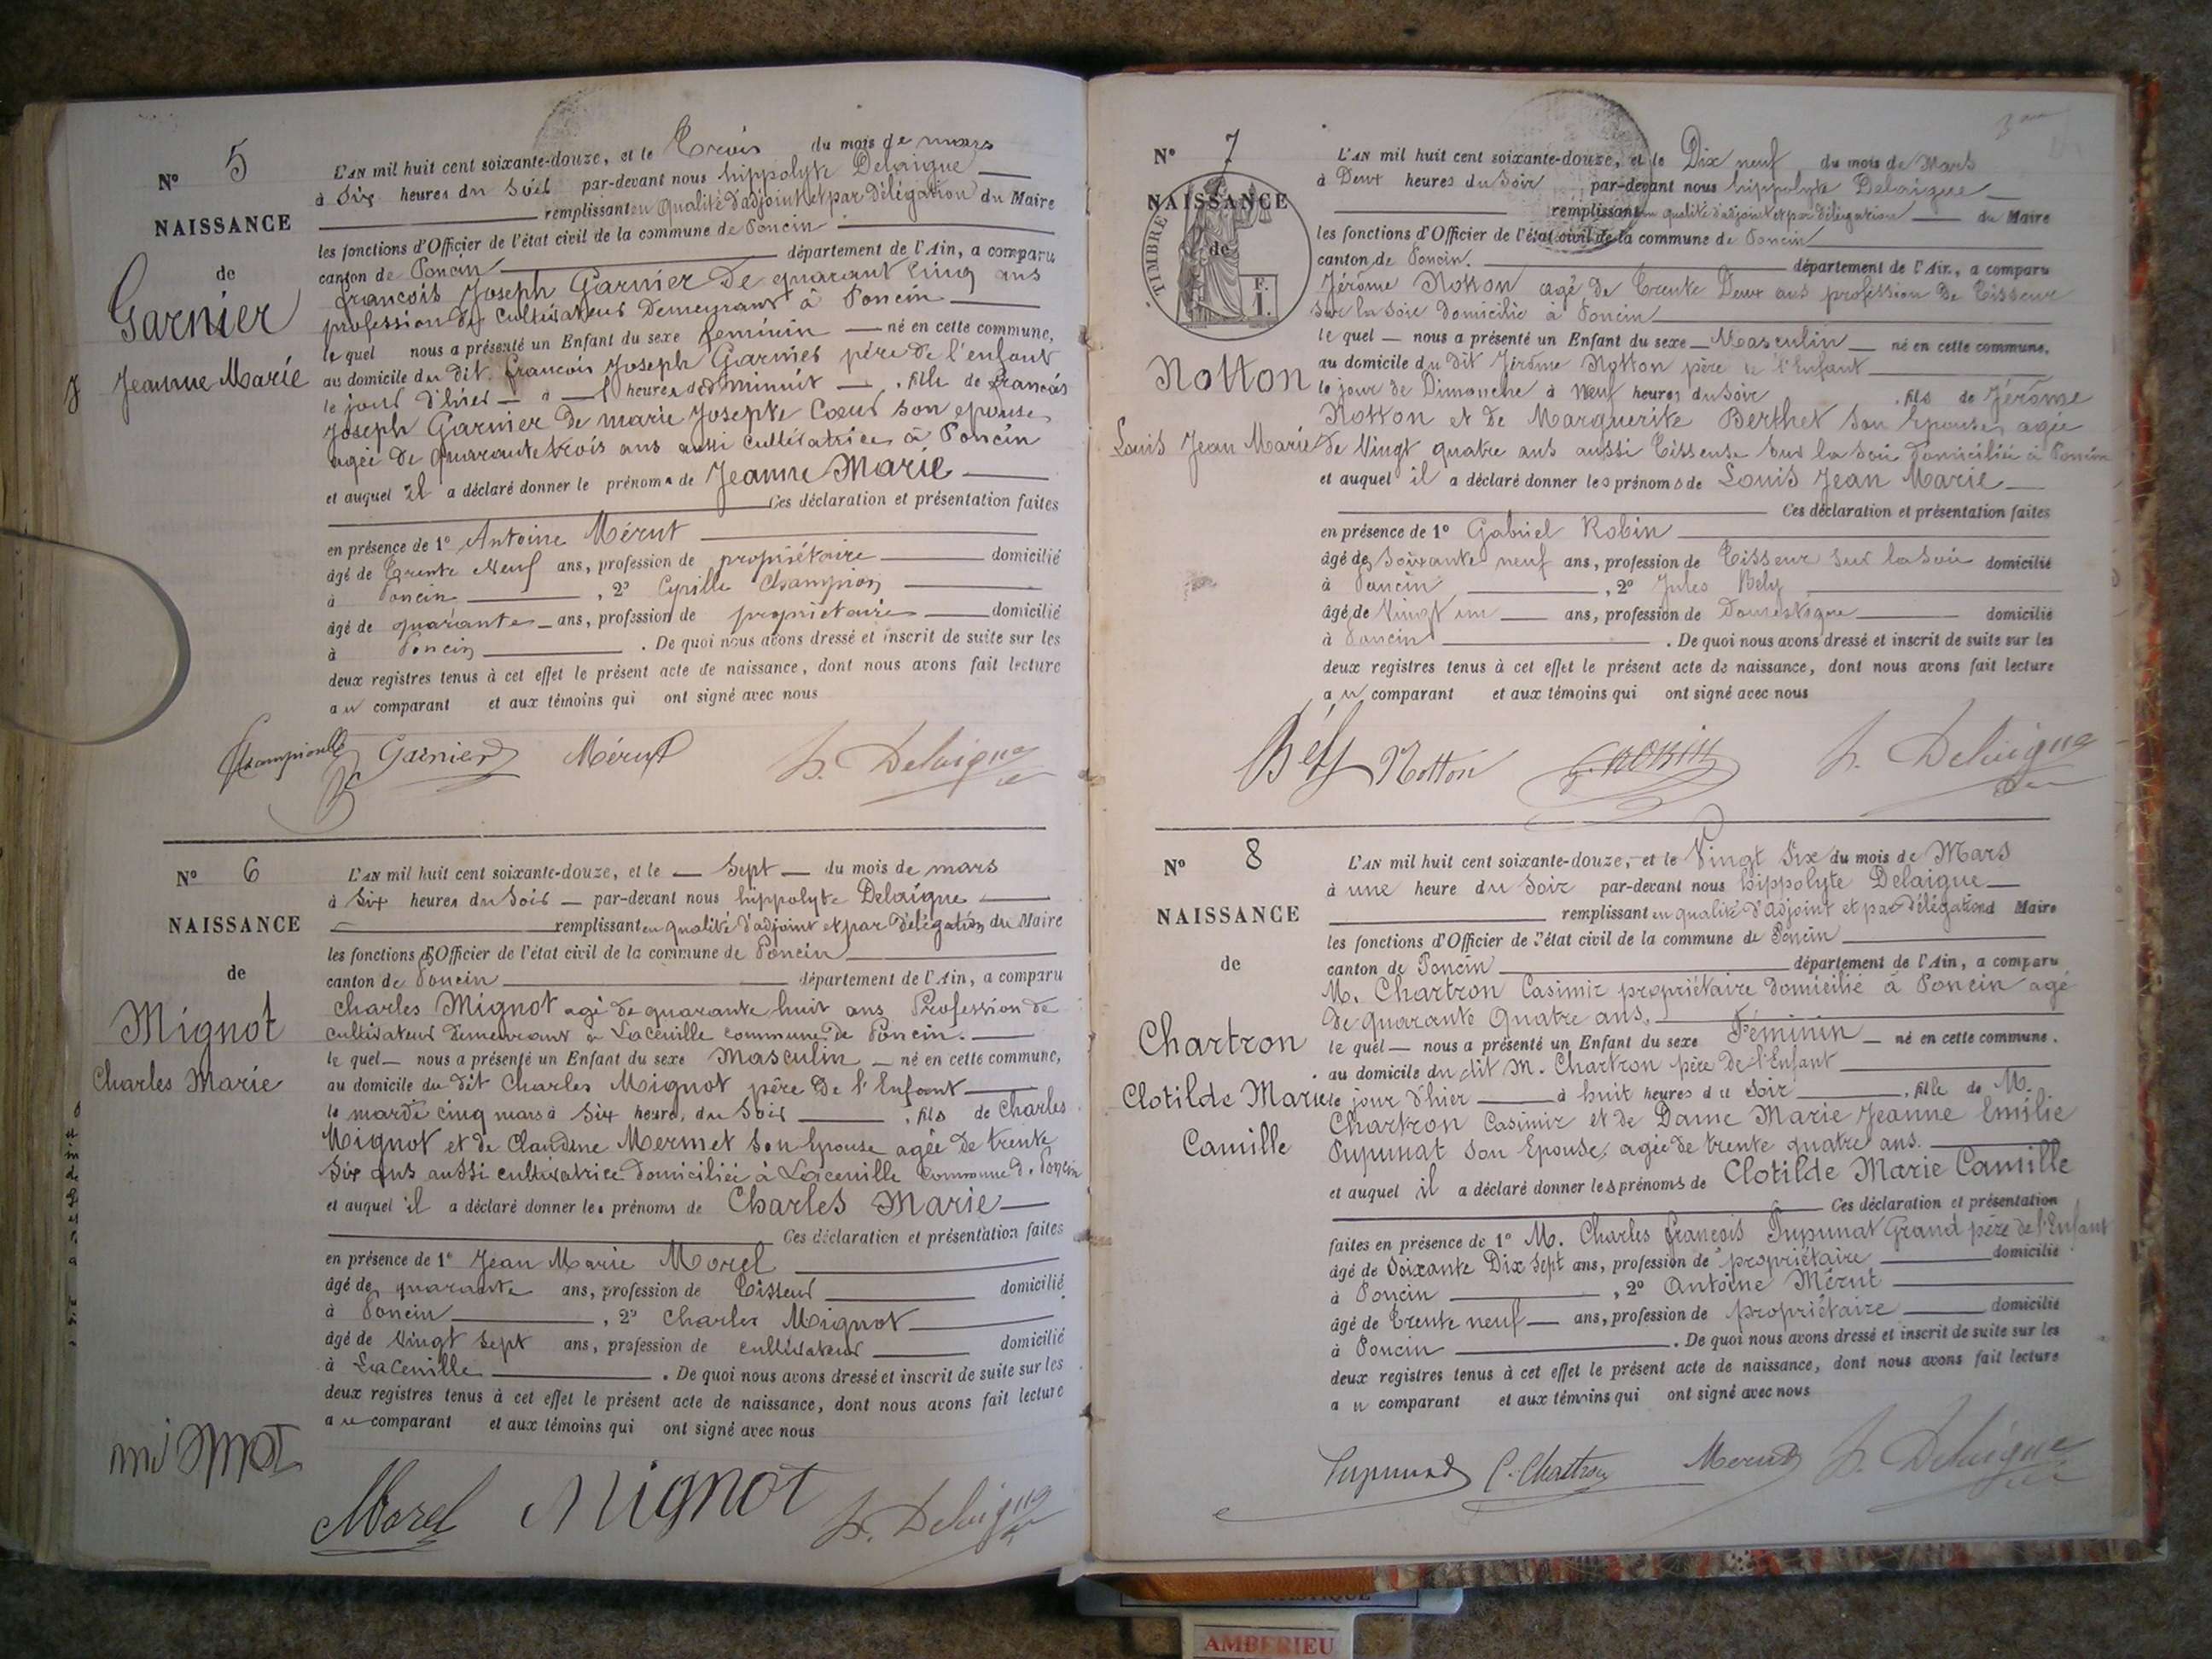 N° 5
NAISSANCE
de
Garnier
Jeanne Marie
L'AN mil huit cent soixante-douze, et le Trois du mois de mars
à Six heures du Soir par-devant nous hippolyte Delaigue
remplissant en qualité d'adjoint et par délégation du Maire
les fonctions d'Officier de l'état civil de la commune de Poncin
canton de Poncin département de l'Ain, a comparu
francois Joseph Garnier de quarant Cinq ans
profession de Cultivateur demeurant à Poncin
le quel nous a présenté un Enfant du sexe feminin né en cette commune,
au domicile du dit francois Joseph Garnier père de l'enfant
le jour d'hier à heures de minuit , fille de francois
Joseph Garnier de marie Josephte Coeur son epouse
agée de quarante trois ans aussi cultivatrice à Poncin
et auquel il a déclaré donner le prénoms de Jeanne Marie
Ces déclaration et présentation faites
en présence de 1° Antoine Mérut
âgé de Trente Neuf ans, profession de propriétaire domicilié
à Poncin , 2° Cyrille Champion
âgé de quarante ans, profession de propriétaire domicilié
à Poncin . De quoi nous avons dressé et inscrit de suite sur les
deux registres tenus à cet effet le présent acte de naissance, dont nous avons fait lecture
au comparant et aux témoins qui ont signé avec nous
Garnier Mérut h. Delaigue
N° 6
NAISSANCE
de
Mignot
Charles Marie
L'AN mil huit cent soixante-douze, et le Sept du mois de mars
à Six heures du Soir par-devant nous hippolyte Delaigue
remplissant en qualité d'adjoint et par délégation du Maire
les fonctions d'Officier de l'état civil de la commune de Poncin
canton de Poncin département de l'Ain, a comparu
Charles Mignot agé de quarante huit ans Profession de
cultivateur demeurant à Laceuille commune de Poncin.
le quel nous a présenté un Enfant du sexe Masculin né en cette commune,
au domicile du dit Charles Mignot père de l'Enfant
le mardi cinq mars à Six heures du Soir , fils de Charles
Mignot et de Claudine Mermet son Epouse agée de trente
Six ans aussi cultivatrice domiciliée à Laceuille Commune de Poncin
et auquel il a déclaré donner les prénoms de Charles Marie
Ces déclaration et présentation faites
en présence de 1° Jean Marie Morel
âgé de quarante ans, profession de Tisseur domicilié
à Poncin , 2° Charles Mignot
âgé de Vingt Sept ans, profession de cultivateur domicilié
à Laceuille . De quoi nous avons dressé et inscrit de suite sur les
deux registres tenus à cet effet le présent acte de naissance, dont nous avons fait lecture
au comparant et aux témoins qui ont signé avec nous
Morel Mignot h. Delaigue
N° 7
NAISSANCE
de
TIMBRE
F.
1.
Notton
Louis Jean Marie
L'AN mil huit cent soixante-douze, et le Dix neuf du mois de Mars
à Deux heures du Soir par-devant nous hippolyte Delaigue
remplissant en qualité d'adjoint et par délégation du Maire
les fonctions d'Officier de l'état civil de la commune de Poncin
canton de Poncin. département de l'Ain, a comparu
Jérôme Notton agé de Trente Deux ans profession de Tisseur
sur la soie domicilié à Poncin
le quel nous a présenté un Enfant du sexe Masculin né en cette commune,
au domicile du dit Jérôme Notton père de l'Enfant
le jour de Dimanche à Neuf heures du Soir , fils de Jérôme
Notton et de Marguerite Berthet son Epouse agée
de Vingt quatre ans aussi Tisseuse sur la soie domiciliée à Poncin
et auquel il a déclaré donner les prénoms de Louis Jean Marie
Ces déclaration et présentation faites
en présence de 1° Gabriel Robin
âgé de soixante neuf ans, profession de Tisseur sur la soie domicilié
à Poncin , 2° Jules Bely
âgé de Vingt un ans, profession de Domestique domicilié
à Poncin . De quoi nous avons dressé et inscrit de suite sur les
deux registres tenus à cet effet le présent acte de naissance, dont nous avons fait lecture
au comparant et aux témoins qui ont signé avec nous
Bély Notton G. ROBIN h. Delaigue
N° 8
NAISSANCE
de
Chartron
Clotilde Marie
Camille
L'AN mil huit cent soixante-douze, et le Vingt Six du mois de Mars
à une heure du Soir par-devant nous hippolyte Delaigue
remplissant en qualité d'adjoint et par délégation d Maire
les fonctions d'Officier de l'état civil de la commune de Poncin
canton de Poncin département de l'Ain, a comparu
M. Chartron Casimir propriétaire domicilié à Poncin agé
de quarante Quatre ans.
le quel nous a présenté un Enfant du sexe Féminin né en cette commune.
au domicile du dit M. Chartron père de l'Enfant
le jour d'hier à huit heures du Soir , fille de M.
Chartron Casimir et de Dame Marie Jeanne Emilie
Pupunat son Epouse, agée de trente quatre ans.
et auquel il a déclaré donner les prénoms de Clotilde Marie Camille
Ces déclaration et présentation
faites en présence de 1° M. Charles françois Pupunat Grand père de l'Enfant
âgé de Soixante Dix Sept ans, profession de propriétaire domicilié
à Poncin , 2° Antoine Mérut
âgé de Trente neuf ans, profession de propriétaire domicilié
à Poncin . De quoi nous avons dressé et inscrit de suite sur les
deux registres tenus à cet effet le présent acte de naissance, dont nous avons fait lecture
au comparant et aux témoins qui ont signé avec nous
Pupunat C. Chartron Merut h. Delaigue
AMBERIEU